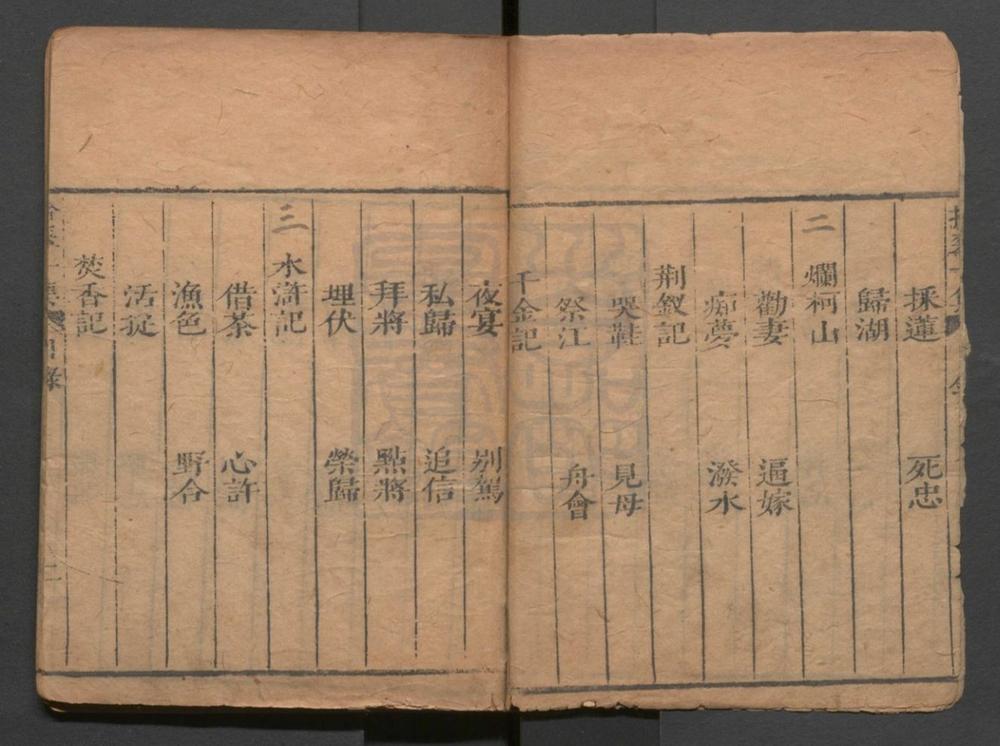 採蓮 死忠
歸湖
二 爛柯山
勸妻 逼嫁
痴夢 潑水
荆釵記
哭鞋 見母
祭江 舟會
千金記
夜宴 别駕
私歸 追信
拜將 點將
埋伏 榮歸
三 水滸記
借茶 心許
漁色 野合
活捉
焚香記
目錄 二